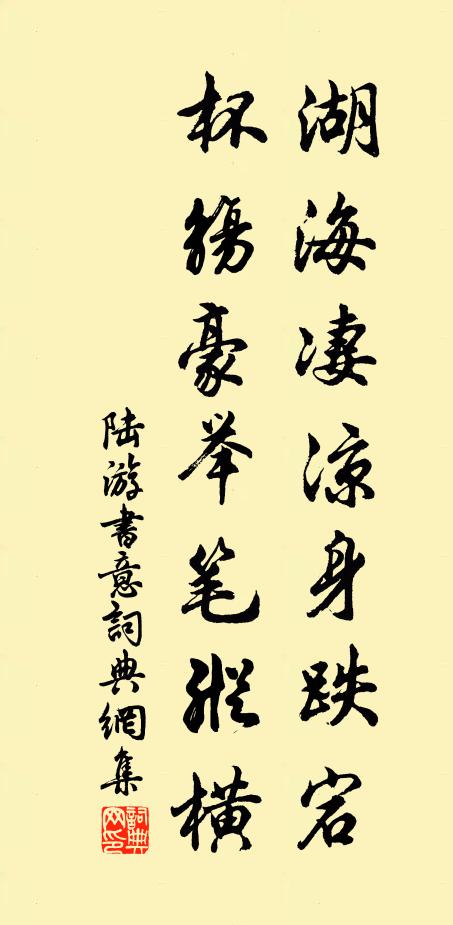 湖海凄凉身跌宕
杯觞豪举笔纵横
陆游书意词典网集
词典网印